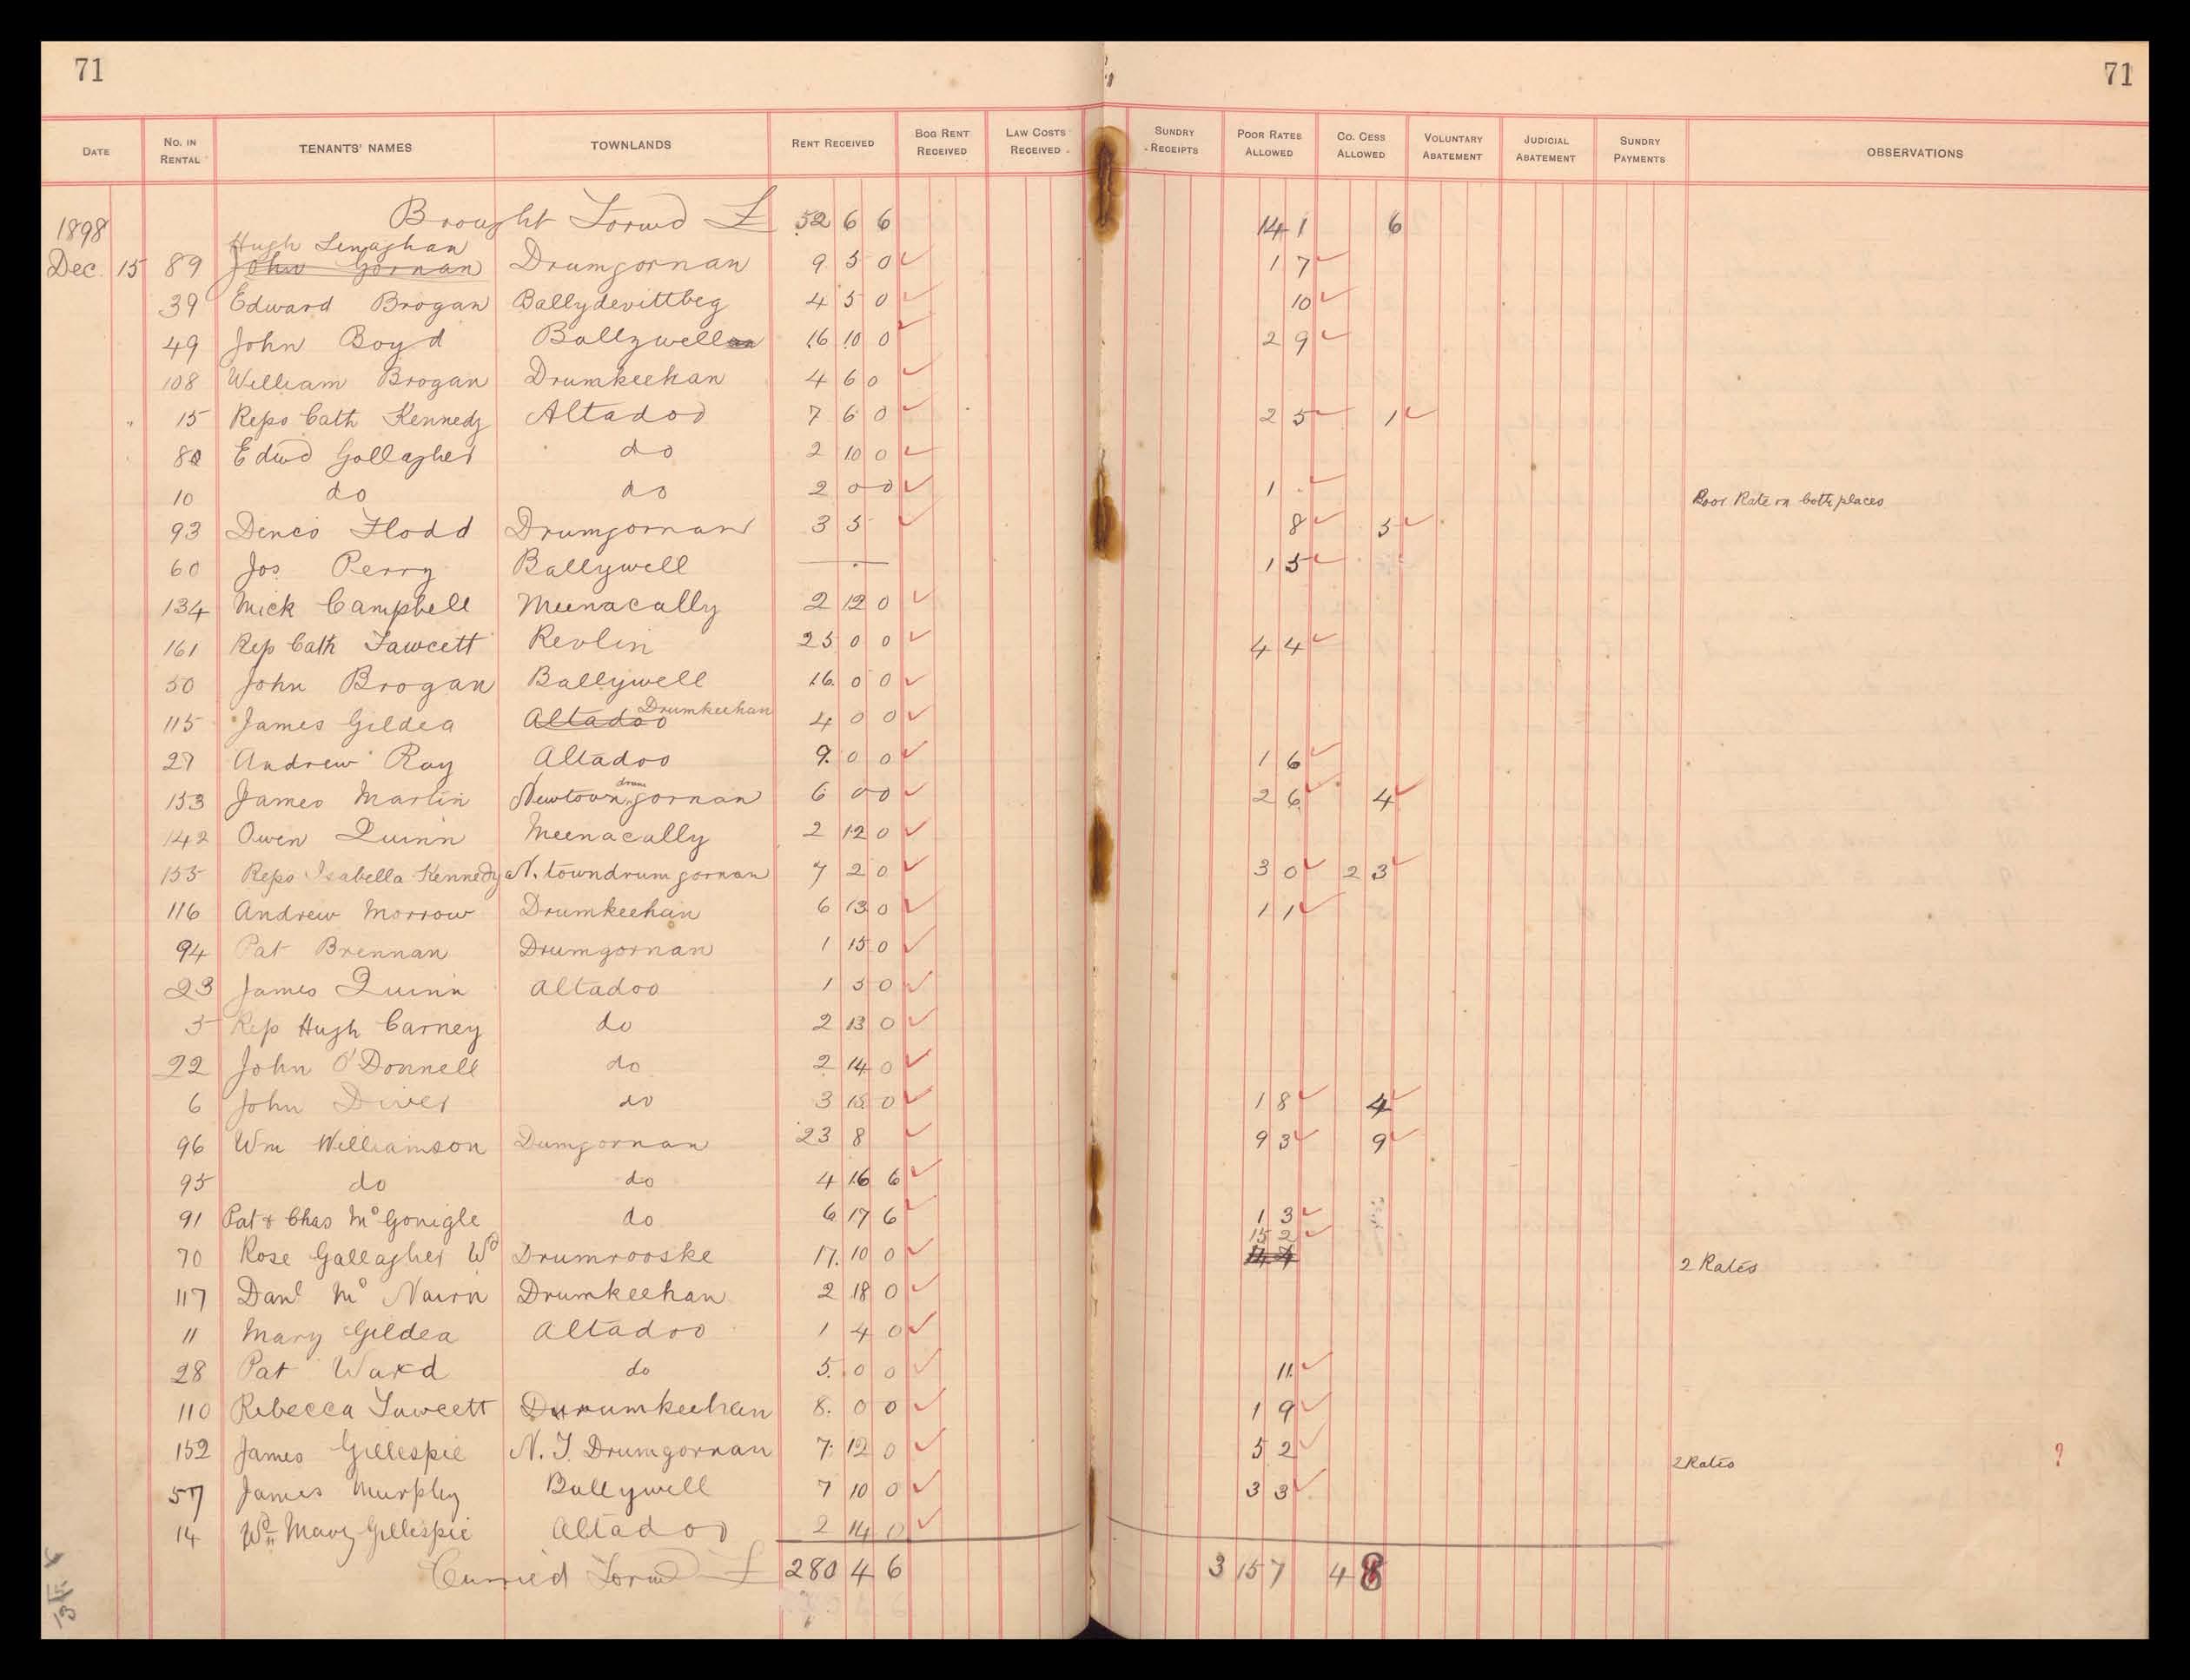 71 71
DATE No. IN RENTAL TENANTS' NAMES TOWNLANDS RENT RECEIVED BOG RENT RECEIVED LAW COSTS RECEIVED SUNDRY RECEIPTS POOR RATES ALLOWED CO. CESS ALLOWED VOLUNTARY ABATEMENT JUDICIAL ABATEMENT SUNDRY PAYMENTS OBSERVATIONS
1898 Brought Forwd £ 52 6 6 14 1 6
Hugh Lenaghan
Dec. 15 89 John Gornan Drumgornan 9 5 0 1 7
39 Edward Brogan Ballydevittbeg 4 5 0 10
49 John Boyd Ballywell 16 10 0 2 9
108 William Brogan Drumkeehan 4 6 0
15 Reps Cath Kennedy Altadoo 7 6 0 2 5 1
80 Edwd Gallagher do 2 10 0
10 do do 2 0 0 1 Poor Rate on both places
93 Denis Flood Drumgornan 3 5 8 5
60 Jos Perry Ballywell — 1 5
134 Mick Campbell Meenacally 2 12 0
161 Rep Cath Fawcett Revlin 25 0 0 4 4
50 John Brogan Ballywell 16 0 0
115 James Gildea Altadoo Drumkeehan 4 0 0
27 Andrew Ray Altadoo 9 0 0 1 6
153 James Martin Newtown drum gornan 6 0 0 2 6 4
142 Owen Quinn Meenacally 2 12 0
155 Reps Isabella Kennedy N. towndrumgornan 7 2 0 3 0 2 3
116 Andrew Morrow Drumkeehan 6 13 0 1 1
94 Pat Brennan Drumgornan 1 15 0
23 James Quinn Altadoo 1 5 0
5 Rep Hugh Carney do 2 13 0
22 John O'Donnell do 2 14 0
6 John Diver do 3 15 0 1 8 4
96 Wm Williamson Dumgornan 23 8 9 3 9
95 do do 4 16 6
91 Pat & Chas McGonigle do 6 17 6 1 3
70 Rose Gallagher Wd Drumrooske 17 10 0 15 2 2 Rates
117 Danl Mc Nairn Drumkeehan 2 18 0
11 Mary Gildea Altadoo 1 4 0
28 Pat Ward do 5 0 0 11
110 Rebecca Fawcett Drumkeehan 8 0 0 1 9
152 James Gillespie N. T. Drumgornan 7 12 0 5 2 2 Rates ?
57 James Murphy Ballywell 7 10 0 3 3
14 Wd Mary Gillespie Altadoo 2 14 0
Carried Forwd £ 280 4 6 3 15 7 4 8